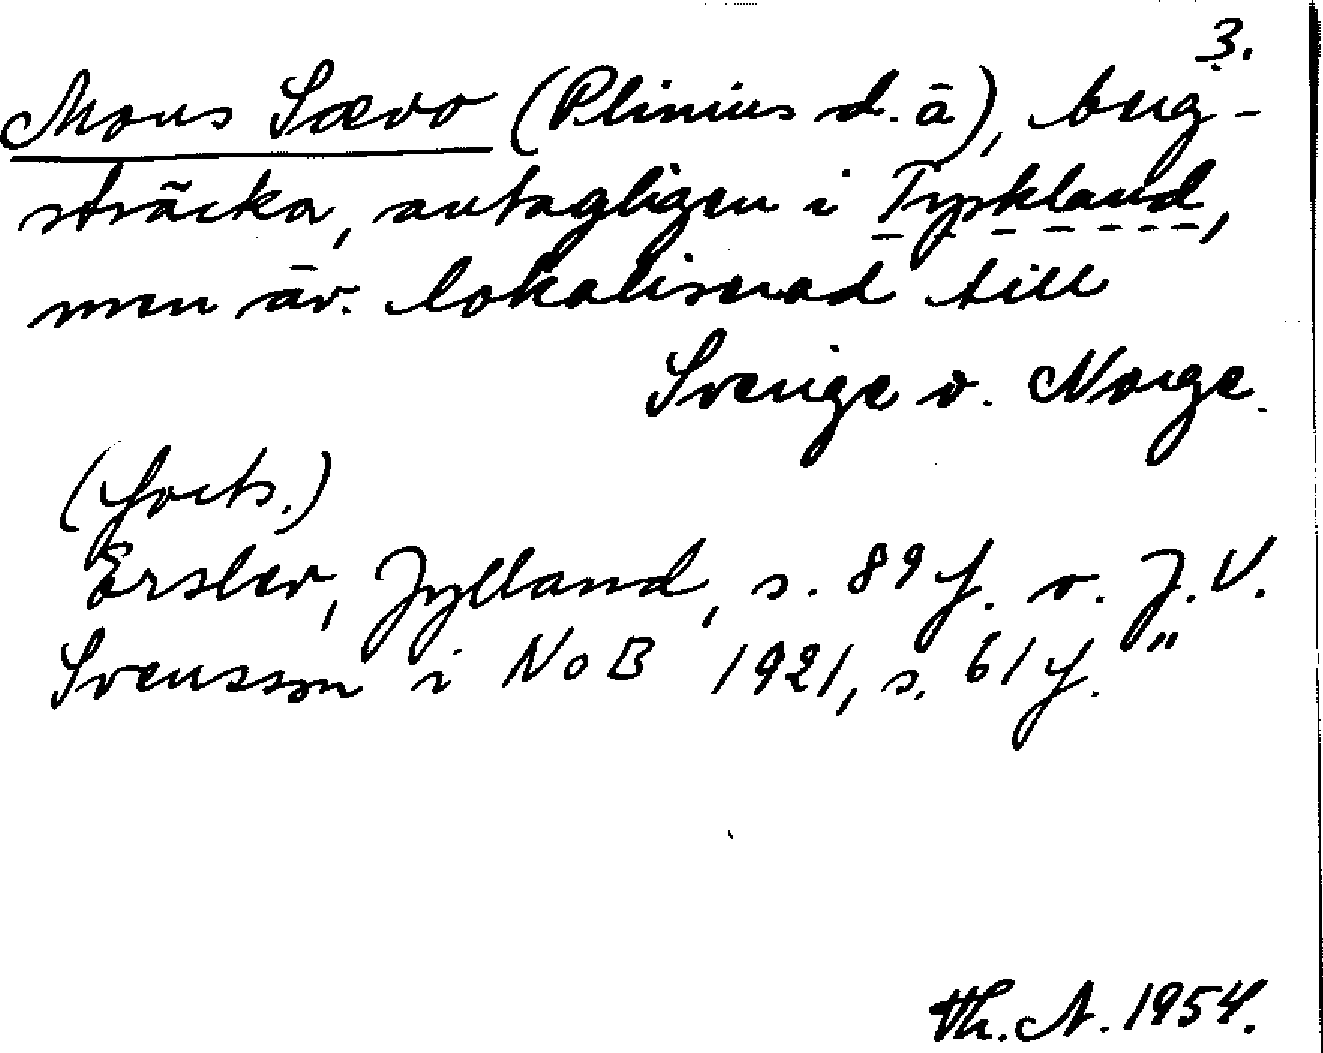 3.
Mons Sævo (Plinius d.ä), berg-
sträcka, antagligen i Tyskland,
men äv. lokaliserad till
Sverige o. Norge.
(forts.)
Erslev, Jylland, s. 89 f. o. J.V.
Svensson i NoB 1921, s. 61 f."
Th. A. 1954.